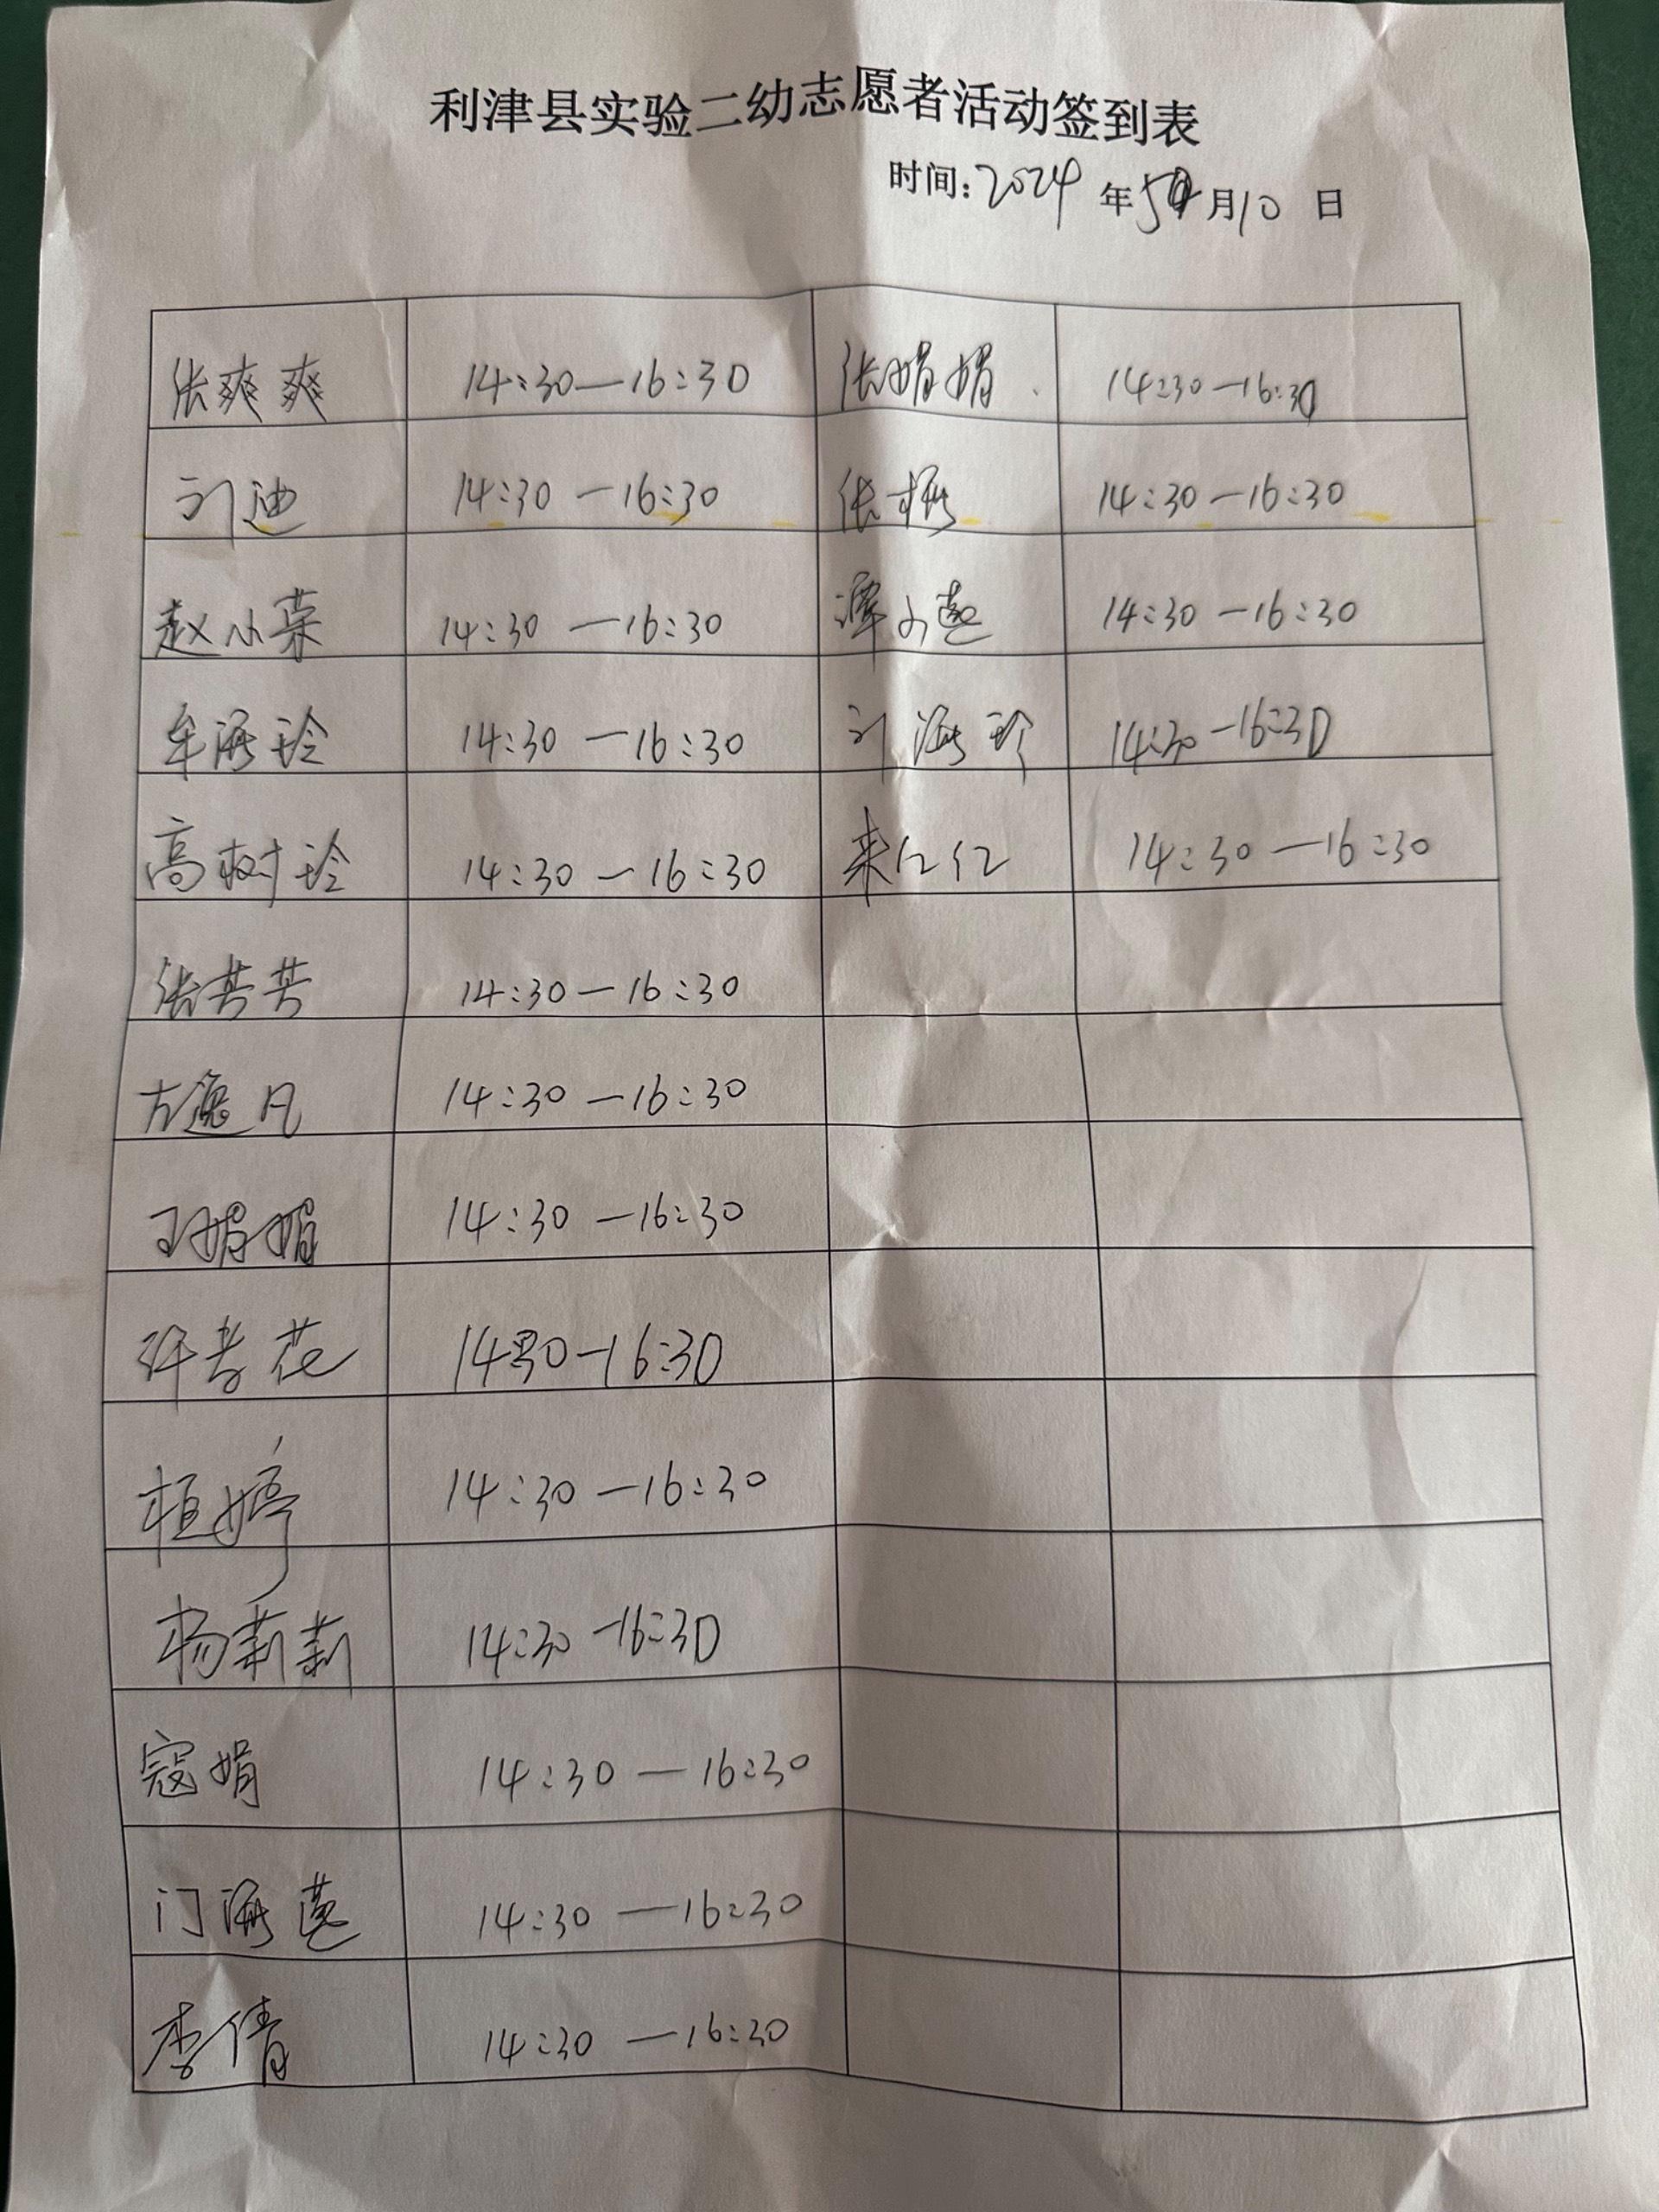 利津县实验二幼志愿者活动签到表
时间:2024 年 5 月 10 日
张爽爽 14:30—16:30 张娟娟 14:30—16:30
刘迪 14:30—16:30 张 14:30—16:30
赵小荣 14:30—16:30 谭小莲 14:30—16:30
牟海玲 14:30—16:30 刘海玲 14:30—16:30
高树玲 14:30—16:30 来红红 14:30—16:30
张芳芳 14:30—16:30
逸凡 14:30—16:30
王娟娟 14:30—16:30
许春花 14:30—16:30
桓婷 14:30—16:30
杨莉莉 14:30—16:30
寇娟 14:30—16:30
门海莲 14:30—16:30
李倩 14:30—16:30